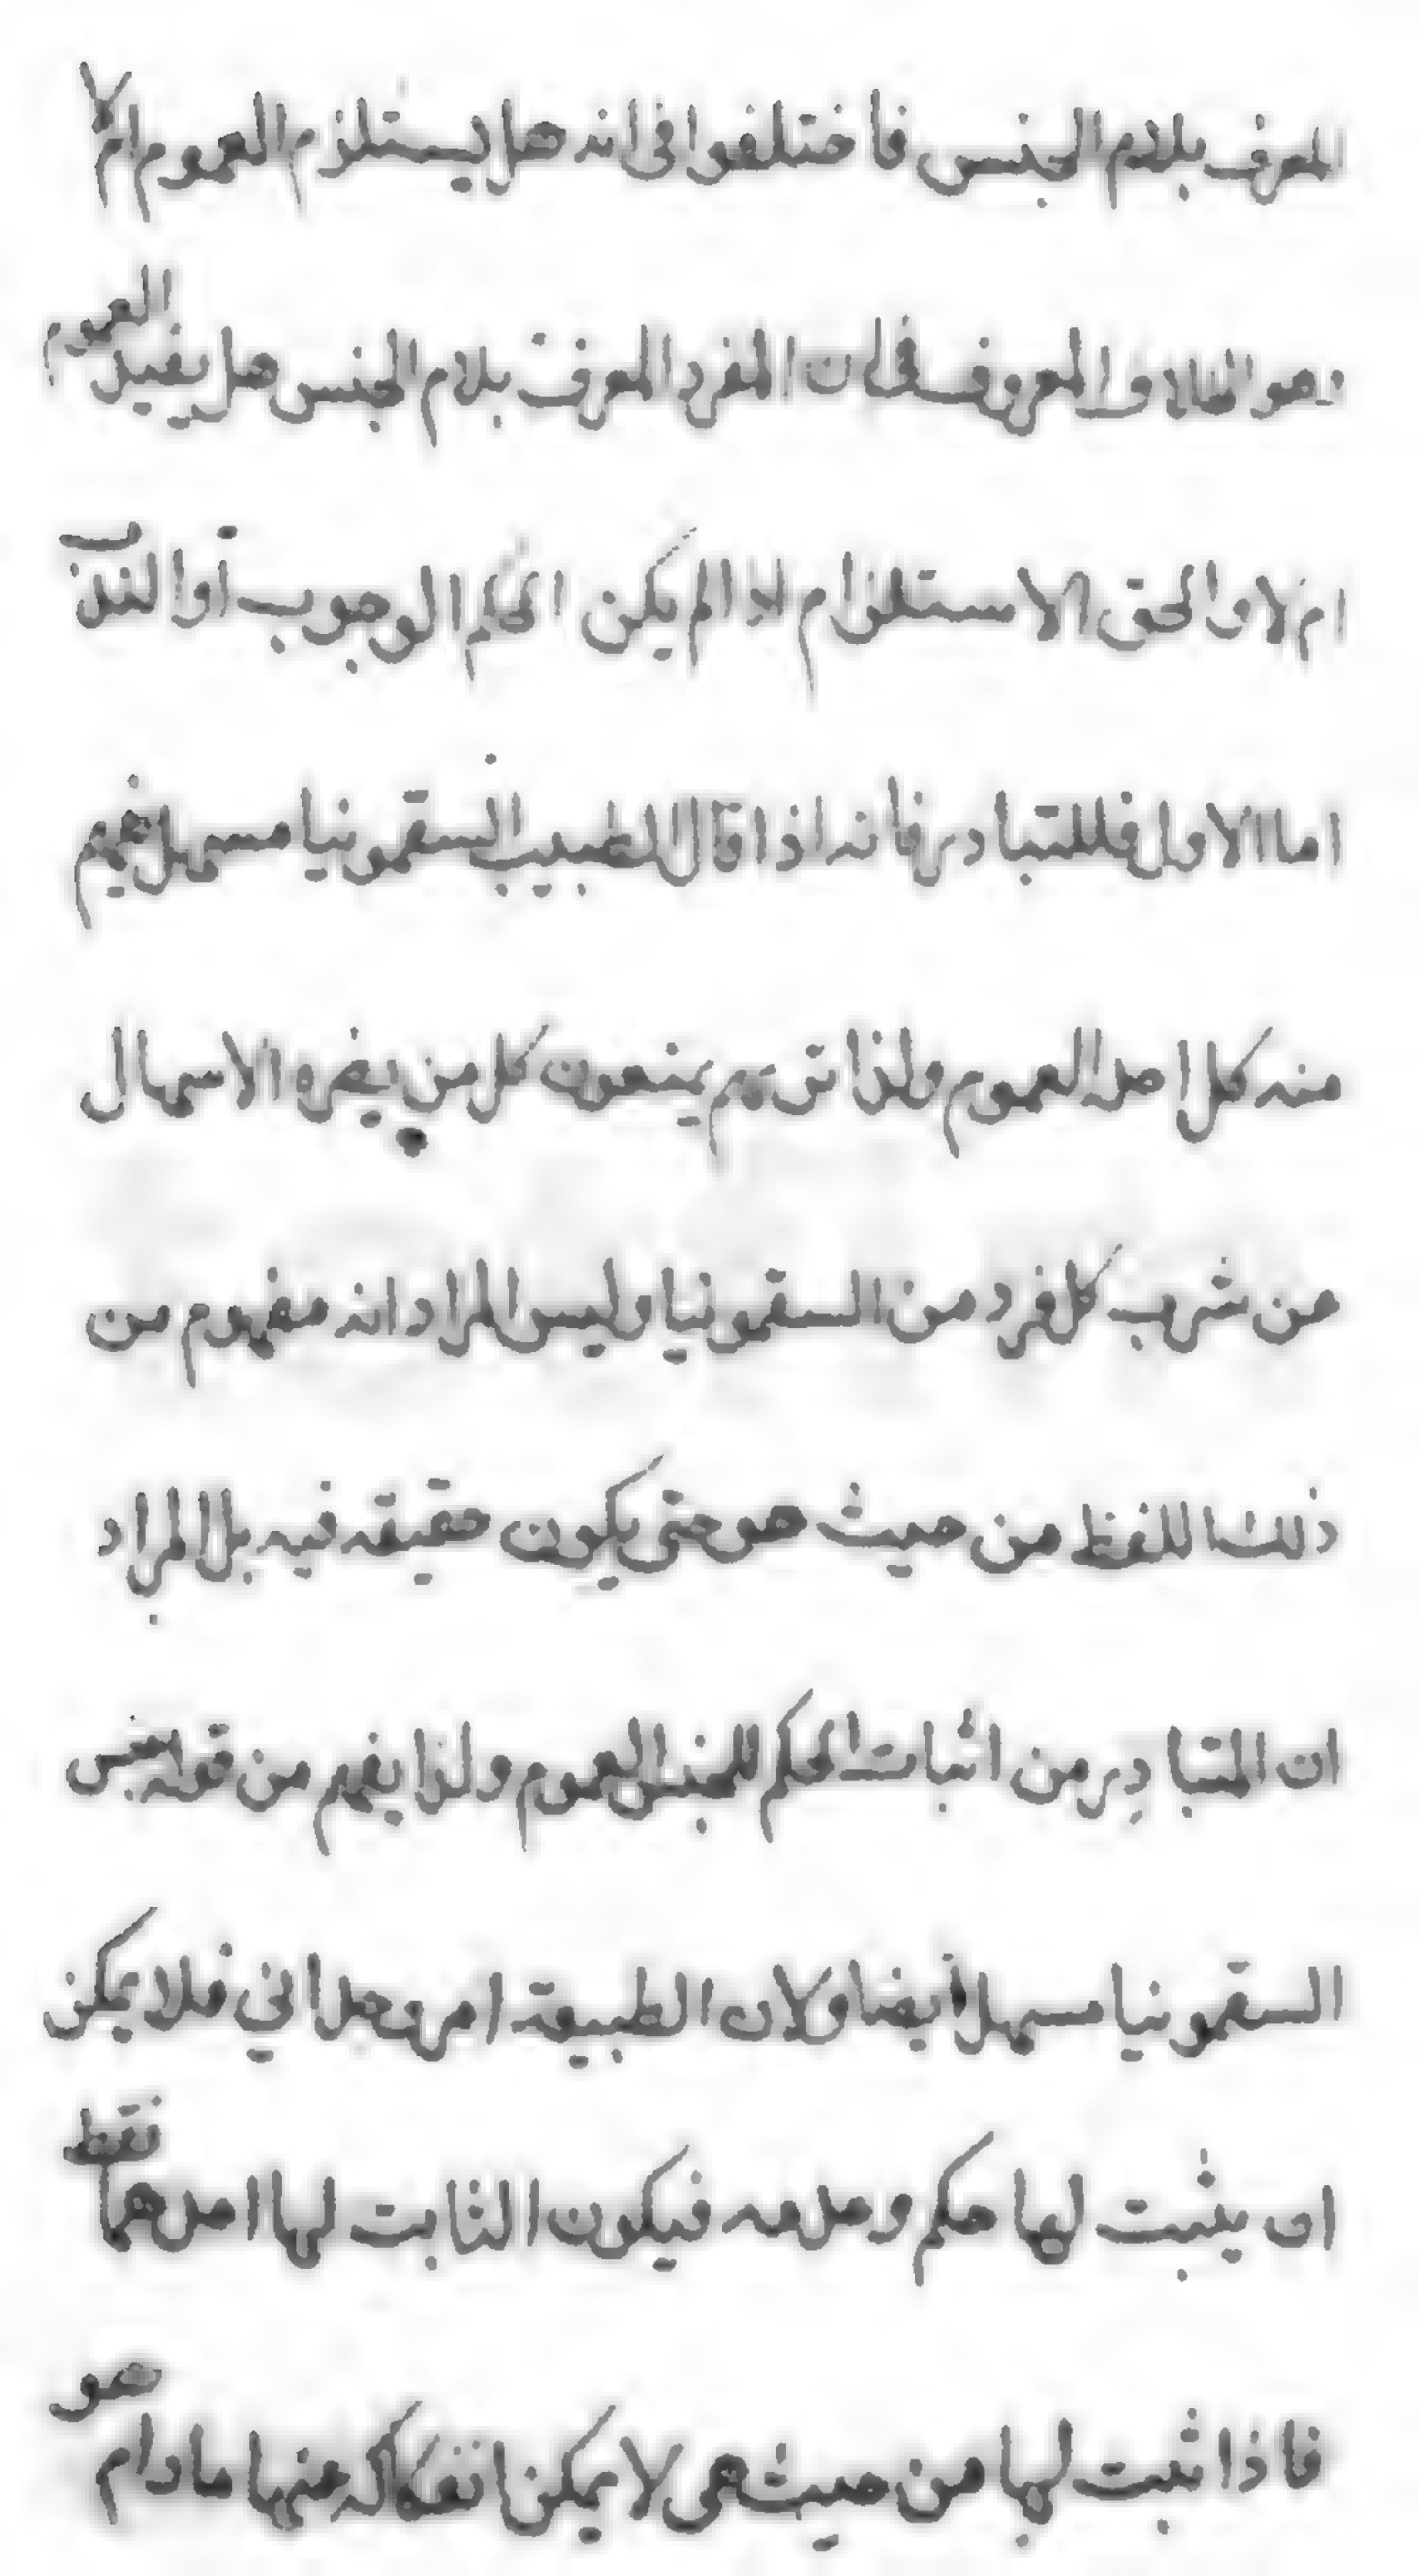 المعرف بلام الجنس فاختلفوا فى انه هل يستلزم العموم ام لا
وهو المادة والمعروف فى ان المفرد المعرف بلام الجنس هل يفيد العموم
ام لا والحق الاستلزام اذا لم يكن الحكم الوجوب او الندب
اما الاول فللتبادر فانه اذا قال الطبيب السقمونيا مسهل يفهم
منه كل احد العموم ولذا تريهم يمنعون كل من يضره الاسهال
من شرب كل فرد من السقمونيا وليس المراد انه مفهوم من
ذلك اللفظ من حيث هو حتى يكون حقيقه فيه بل المراد
ان المتبادر من اثبات الحكم للجنس العموم ولذا يفهم من قوله جنس
السقمونيا مسهل ايضا ولان الطبيعة امر وحدانى فلا يمكن
ان يثبت لها حكم وحدمه فيكون الثابت لها احدهما فقط
فاذا ثبت لها من حيث هى لا يمكن انفكاكه عنها ما دام هو